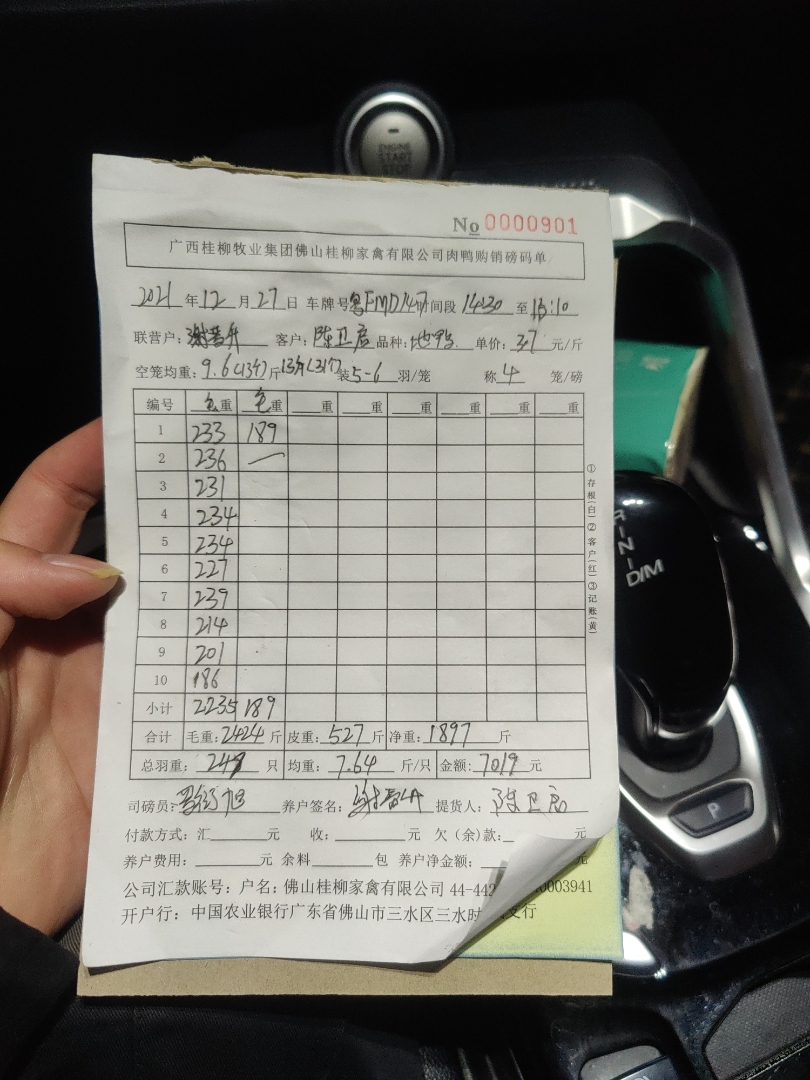 ENGINE
START
STOP
No 0000901
广西桂柳牧业集团佛山桂柳家禽有限公司肉鸭购销磅码单
2021 年 12 月 27 日 车牌号 粤FMD147 时间段 14:30 至 16:10
联营户: 谢晋升 客户: 陈卫启 品种: 地鸭 单价: 3.7 元/斤
空笼均重: 9.6(13个) 斤 13.4(31个) 装 5-6 羽/笼 称 4 笼/磅
编号 毛重 毛重 重 重 重 重 重 重
1 233 189
2 236
3 231
4 234
5 234
6 227
7 239
8 214
9 201
10 186
小计 2235 189
合计 毛重: 2424 斤 皮重: 527 斤 净重: 1897 斤
总羽重: 248 只 均重: 7.64 斤/只 金额: 7019 元
司磅员: 养户签名: 提货人: 陈卫启
付款方式: 汇 元 收: 元 欠(余)款: 元
养户费用: 元 余料 包 养户净金额: 元
公司汇款账号: 户名: 佛山桂柳家禽有限公司 44-442 0003941
开户行: 中国农业银行广东省佛山市三水区三水 支行
①存根(白)②客户(红)③记账(黄)
R
N
D/M
P